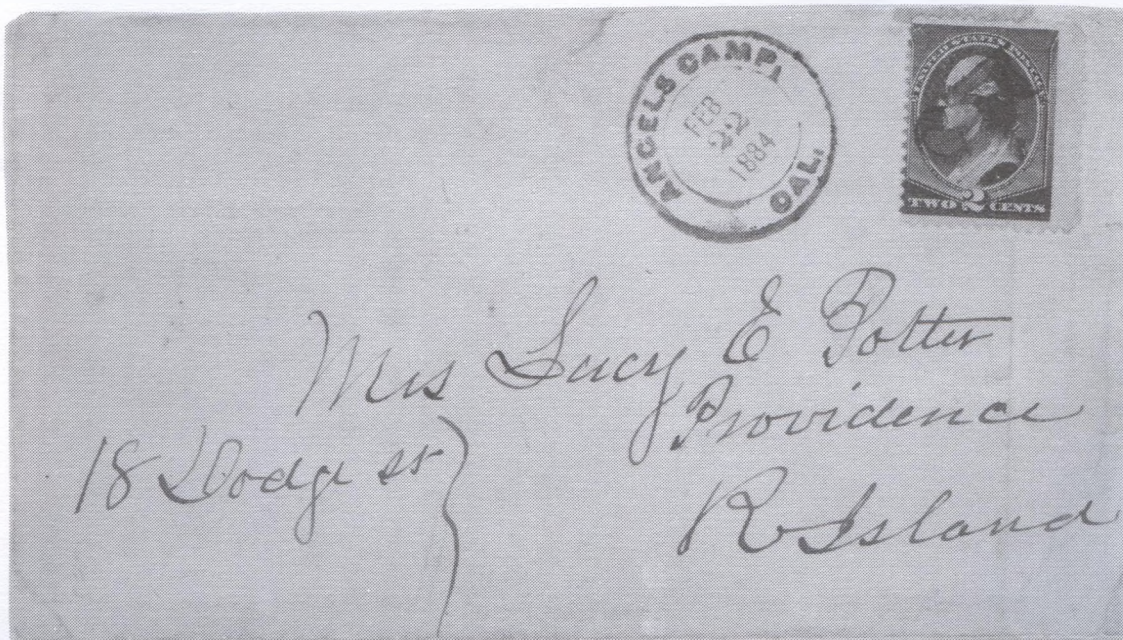 ANGELS CAMP, CAL.
FEB
22
1884
UNITED STATES POSTAGE
TWO 2 CENTS
Mrs Lucy E Potter
Providence
18 Dodge st
R Island